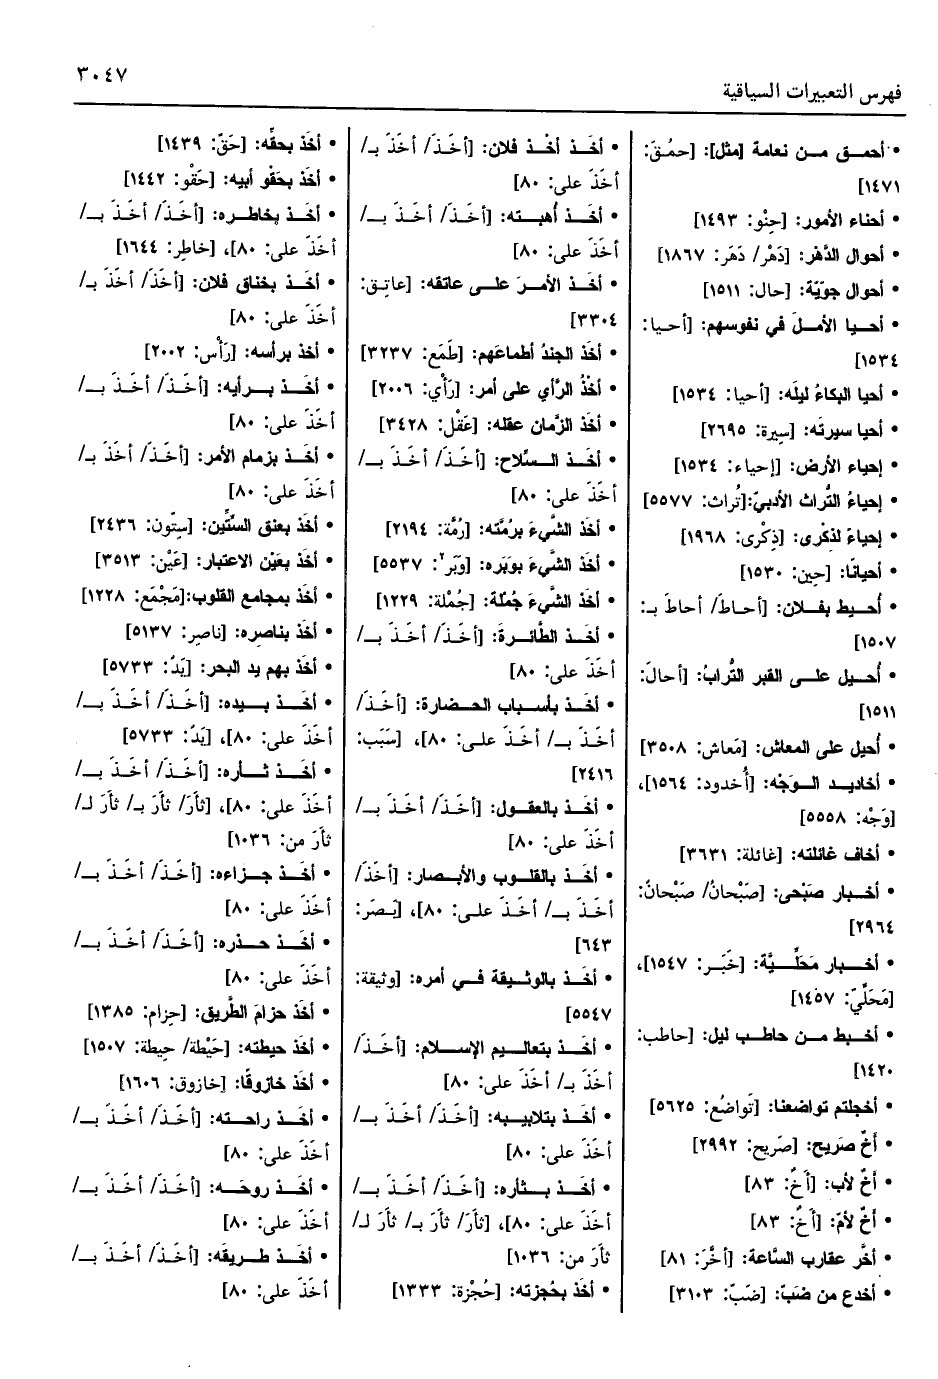 فهرس التعبيرات السياقية
٣٠٤٧
• أحمـق مـن نعامة [مثل]: [حمُـقَ:
١٤٧١]
• أحناء الأمور: [حِنْو: ١٤٩٣]
• أحوال الدَّهْر: [دَهْر/ دَهَر: ١٨٦٧]
• أحوال جوّيّة: [حال: ١٥١١]
• أحـيا الأمـلَ في نفوسهم: [أحـيا:
١٥٣٤]
• أحيا البكاءُ ليلَه: [أحيا: ١٥٣٤]
• أحيا سيرتَه: [سِيرة: ٢٦٩٥]
• إحياء الأرض: [إحياء: ١٥٣٤]
• إحياءُ التُّراث الأدبيّ:[تُراث: ٥٥٧٧]
• إحياءً لذكْرى: [ذِكْرى: ١٩٦٨]
• أحيانًا: [حِين: ١٥٣٠]
• أُحـيط بفـلان: [أحـاطَ/ أحاطَ بـ:
١٥٠٧]
• أُحـيل علـى القبر التُّرابُ: [أحالَ:
١٥١١]
• أُحيل على المعاش: [مَعاش: ٣٥٠٨]
• أخاديـد الـوَجْه: [أُخدود: ١٥٦٤]،
[وَجْه: ٥٥٥٨]
• أخاف غائلته: [غائلة: ٣٦٣١]
• أخـبار صَبْحى: [صَبْحانُ/ صَبْحانٌ:
٢٩٦٤]
• أخـبار مَحَلِّـيَّة: [خَبَـر: ١٥٤٧]،
[مَحَلِّيّ: ١٤٥٧]
• أخـبط مـن حاطـب ليل: [حاطب:
١٤٢٠]
• أخجلتم تواضعنا: [تَواضُع: ٥٦٢٥]
• أخٌ صَريح: [صَريح: ٢٩٩٢]
• أخٌ لأب: [أخٌ: ٨٣]
• أخٌ لأمّ: [أخٌ: ٨٣]
• أخَّر عقارب السَّاعة: [أخَّرَ: ٨١]
• أخدع من ضَبّ: [ضَبّ: ٣١٠٣]
• أخَـذ أخْـذ فلان: [أخَـذَ/ أخَذَ بـ/
أخَذَ على: ٨٠]
• أخَـذ أُهبـته: [أخَـذَ/ أخَـذَ بــ/
أخَذَ على: ٨٠]
• أخَـذ الأمـرَ علـى عاتقه: [عاتِـق:
٣٣٠٤]
• أخَذ الجندُ أطماعَهم: [طَمَع: ٣٢٣٧]
• أخْذُ الرَّأي على أمر: [رَأْي: ٢٠٠٦]
• أخَذ الزَّمان عقلَه: [عَقْل: ٣٤٢٨]
• أخَـذ السِّلاح: [أخَـذَ/ أخَـذَ بــ/
أخَذَ على: ٨٠]
• أخَذ الشَّيءَ برُمَّته: [رُمَّة: ٢١٩٤]
• أخَذ الشَّيءَ بوَبَره: [وَبَر٢: ٥٥٣٧]
• أخَذ الشَّيءَ جُملة: [جُمْلة: ١٢٢٩]
• أخَـذ الطَّائـرةَ: [أخَـذَ/ أخَـذَ بــ/
أخَذَ على: ٨٠]
• أخَـذ بأسـباب الحـضارة: [أخَـذَ/
أخَـذَ بــ/ أخَـذَ علـى: ٨٠]، [سَبَب:
٢٤١٦]
• أخَـذ بالعقـول: [أخَـذَ/ أخَـذَ بــ/
أخَذَ على: ٨٠]
• أخَـذ بالقلـوب والأبـصار: [أخَـذَ/
أخَـذَ بــ/ أخَـذَ علـى: ٨٠]، [بَـصَر:
٦٤٣]
• أخَـذ بالوثـيقة فـي أمره: [وثيقة:
٥٥٤٧]
• أخَـذ بتعالـيم الإسـلام: [أخَـذَ/
أخَذَ بـ/ أخَذَ على: ٨٠]
• أخَـذ بتلابيـبه: [أخَـذَ/ أخَـذَ بــ/
أخَذَ على: ٨٠]
• أخَـذ بـثأره: [أخَـذَ/ أخَـذَ بــ/
أخَذَ على: ٨٠]، [ثأرَ/ ثأرَ بـ/ ثأرَ لـ/
ثأرَ من: ١٠٣٦]
• أخَذ بحُجزته: [حُجْزة: ١٣٣٣]
• أخَذ بحقِّه: [حَقّ: ١٤٣٩]
• أخَذ بحَقْو أبيه: [حَقْو: ١٤٤٢]
• أخَـذ بخاطـره: [أخَـذَ/ أخَـذَ بــ/
أخَذَ على: ٨٠]، [خاطِر: ١٦٤٤]
• أخَـذ بخناق فلان: [أخَذَ/ أخَذَ بـ/
أخَذَ على: ٨٠]
• أخَذ برأسه: [رَأْس: ٢٠٠٢]
• أخَـذ بـرأيه: [أخَـذَ/ أخَـذَ بــ/
أخَذَ على: ٨٠]
• أخَـذ بزمام الأمر: [أخَذَ/ أخَذَ بـ/
أخَذَ على: ٨٠]
• أخَذ بعنق السِّتِّين: [سِتّون: ٢٤٣٦]
• أخَذ بعَيْن الاعتبار: [عَيْن: ٣٥١٣]
• أخَذ بمجامع القلوب:[مَجْمَع: ١٢٢٨]
• أخَذ بناصره: [ناصِر: ٥١٣٧]
• أخَذ بهم يد البحر: [يَدٌ: ٥٧٣٣]
• أخَـذ بـيده: [أخَـذَ/ أخَـذَ بــ/
أخَذَ على: ٨٠]، [يَدٌ: ٥٧٣٣]
• أخَـذ ثـأره: [أخَـذَ/ أخَـذَ بــ/
أخَذَ على: ٨٠]، [ثأرَ/ ثأرَ بـ/ ثأرَ لـ/
ثأرَ من: ١٠٣٦]
• أخَـذ جـزاءه: [أخَـذَ/ أخَـذَ بــ/
أخَذَ على: ٨٠]
• أخَـذ حـذره: [أخَـذَ/ أخَـذَ بــ/
أخَذَ على: ٨٠]
• أخَذ حزامَ الطَّريق: [حِزام: ١٣٨٥]
• أخَذ حيطته: [حَيْطة/ حِيطة: ١٥٠٧]
• أخَذ خازوقًا: [خازوق: ١٦٠٦]
• أخَـذ راحـته: [أخَـذَ/ أخَـذَ بــ/
أخَذَ على: ٨٠]
• أخَـذ روحَـه: [أخَـذَ/ أخَـذَ بــ/
أخَذَ على: ٨٠]
• أخَـذ طـريقَه: [أخَـذَ/ أخَـذَ بــ/
أخَذَ على: ٨٠]